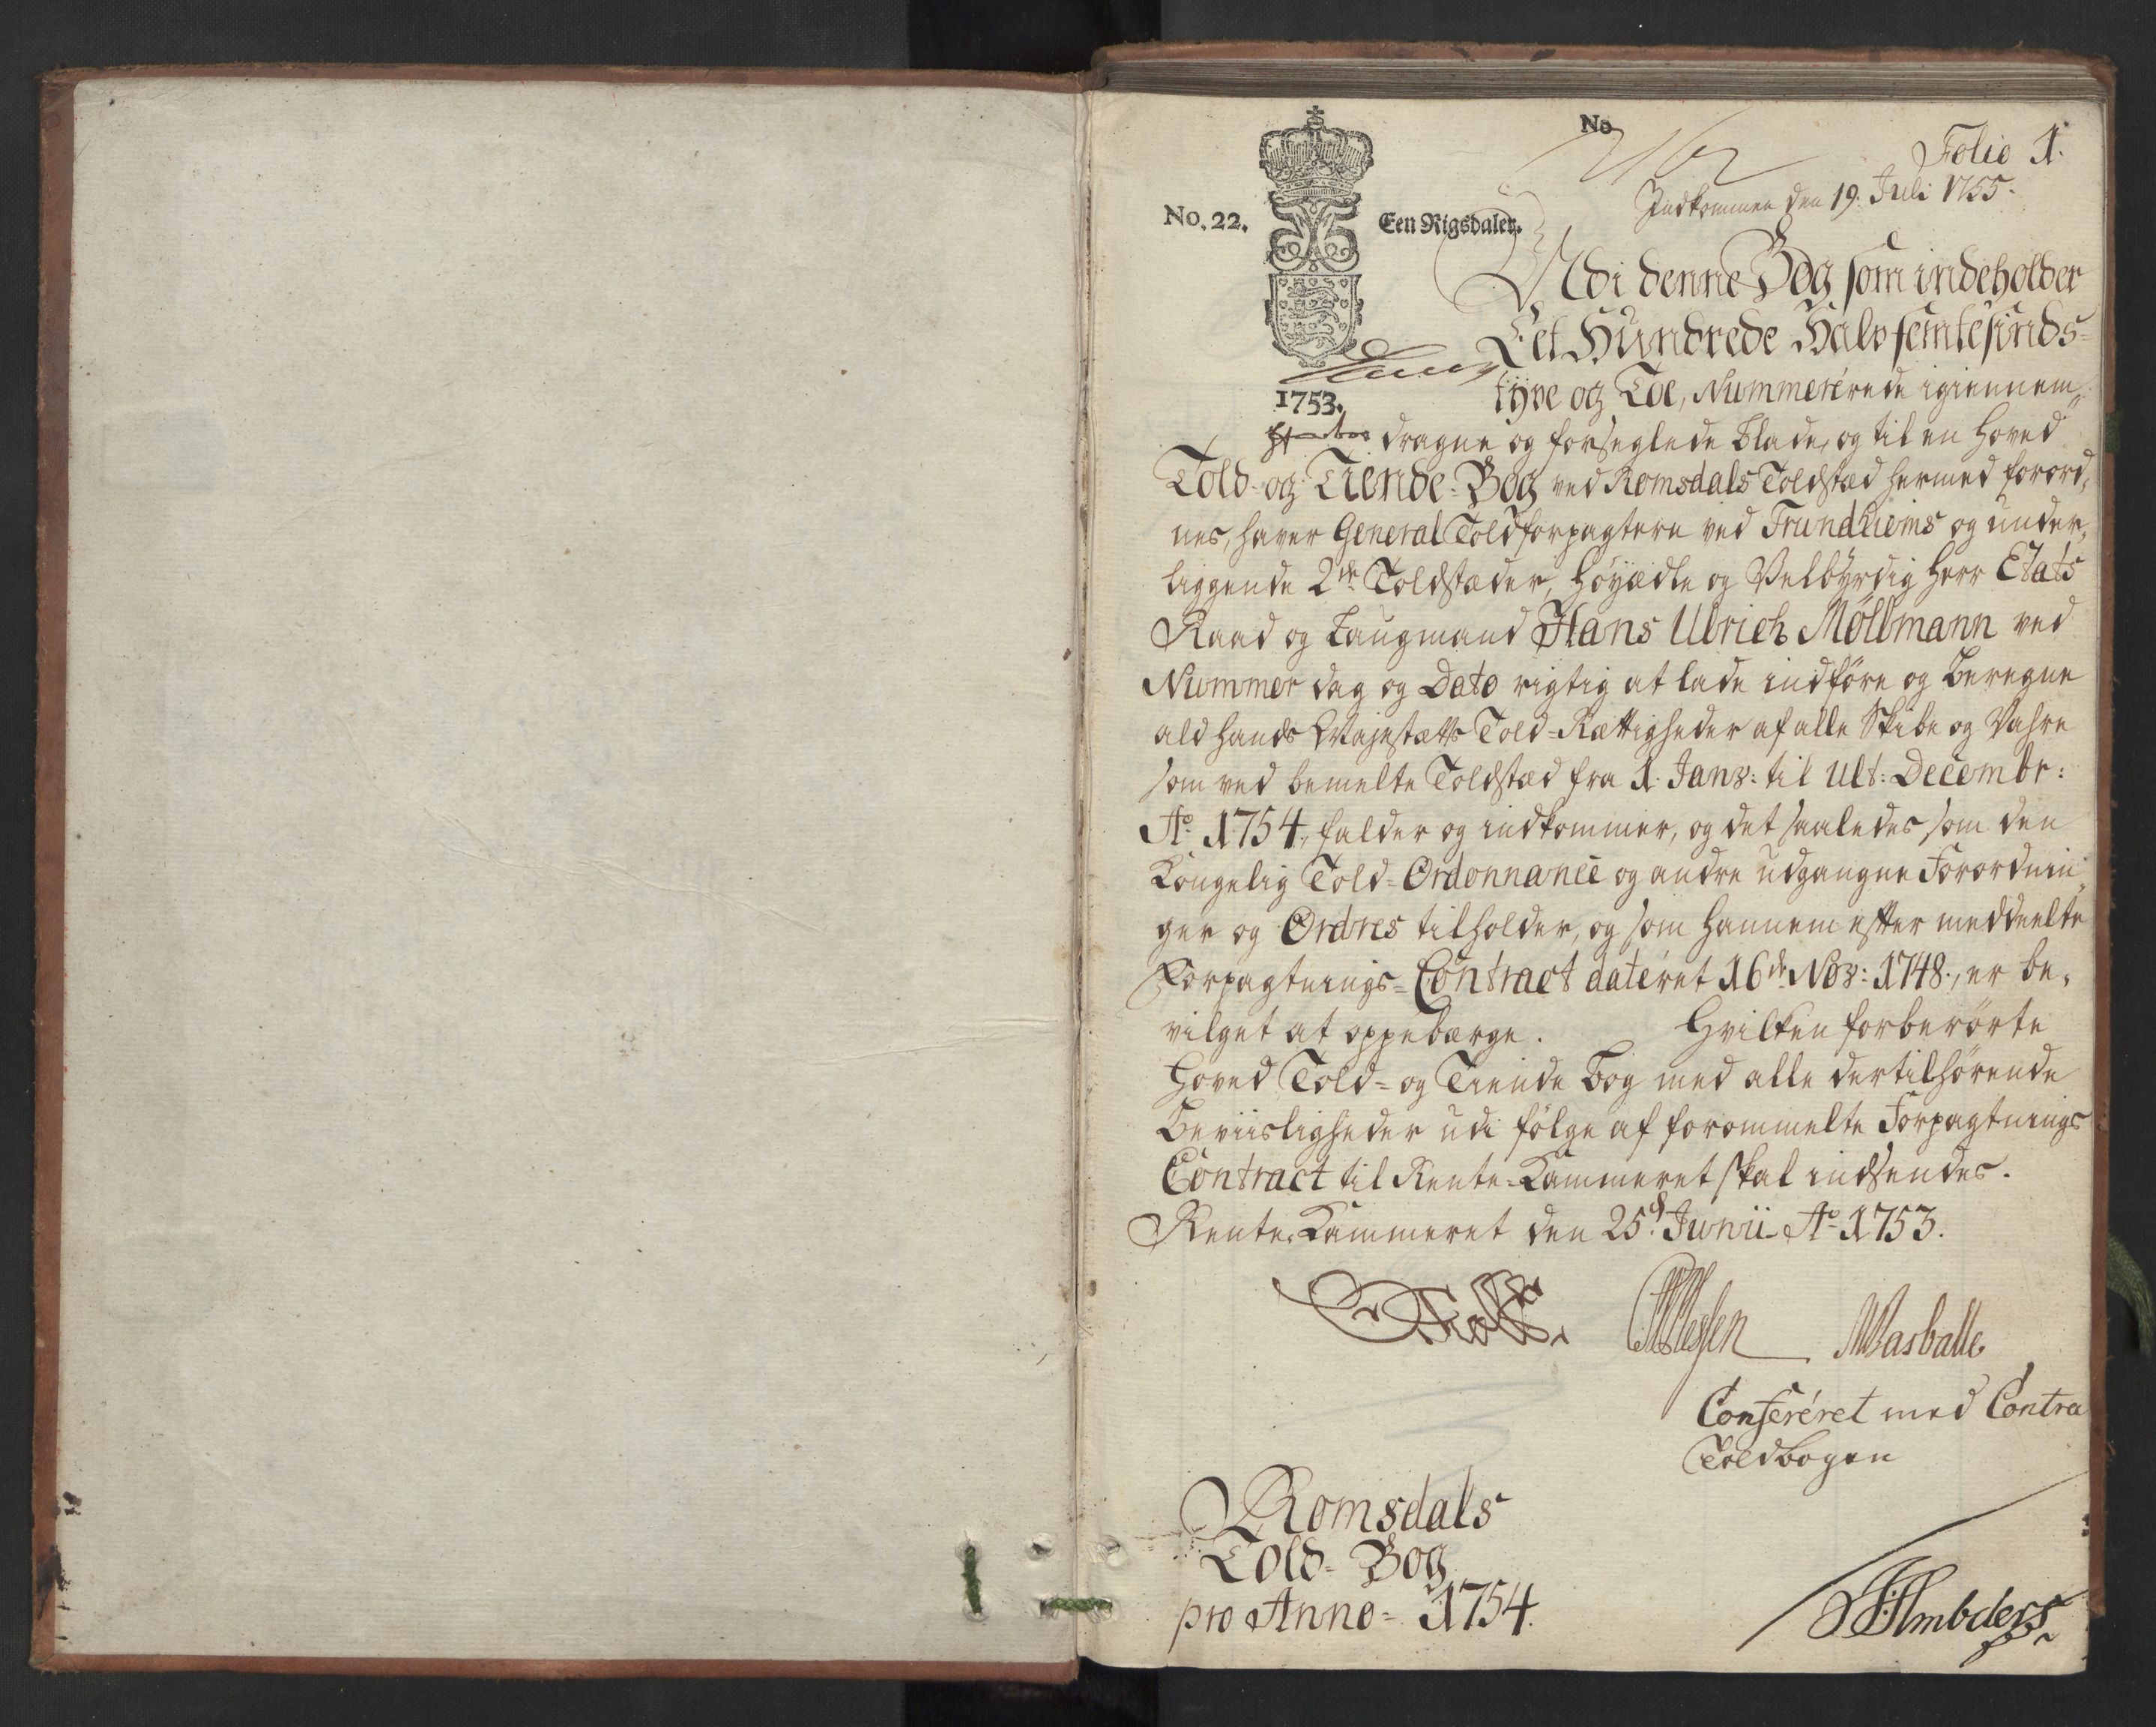 No
Folio 1.
Indkommen den 19. Juli 1755.
No. 22.
Een Rigsdaler.
Udi denne Bog som indeholder
Eet Hundrede Halvfemtesinds=
1753.
tyve og Toe, Nummererede igiennem„
dragne og forseglede blade, og til en Hoved
Told- og Tiende-Bog ved Romsdals Toldstæd hermed forord„
nes, haver General Toldforpagtere ved Trundhiems og under„
liggende 2de Toldstæder, Höyædle og Velbyrdig Herr Etats
Raad og Laugmand Hans Ulrich Möllmann ved
Nummer dag og Dato rigtig at lade indföre og Beregne
ald hands Mayestætts Told-Rættigheder af alle Skibe og Vahre
som ved bemelte Toldstæd fra 1. Janv: til ult: Decembr:
Ao 1754, falder og indkommer, og det saaledes som den
Kongelig Told-Ordonnance og andre udgangne Forordnin„
ger og Ordres tilholder, og som hannem efter meddeelte
Forpagtnings=Contract dateret 16de Nov: 1748., er be„
vilget at oppebærge. Hvilken forberörte
Hoved Told= og Tiende bog med alle dertilhörende
Beviisligheder udi fölge af forommelte Forpagtnings
Contract til Rente-Kammeret skal indsendes.
Rente-Kammeret den 25de Junii Ao 1753.
Conferéret med Contra
Toldbogen
Romsdals
Told-Bog
pro Anno= 1754.